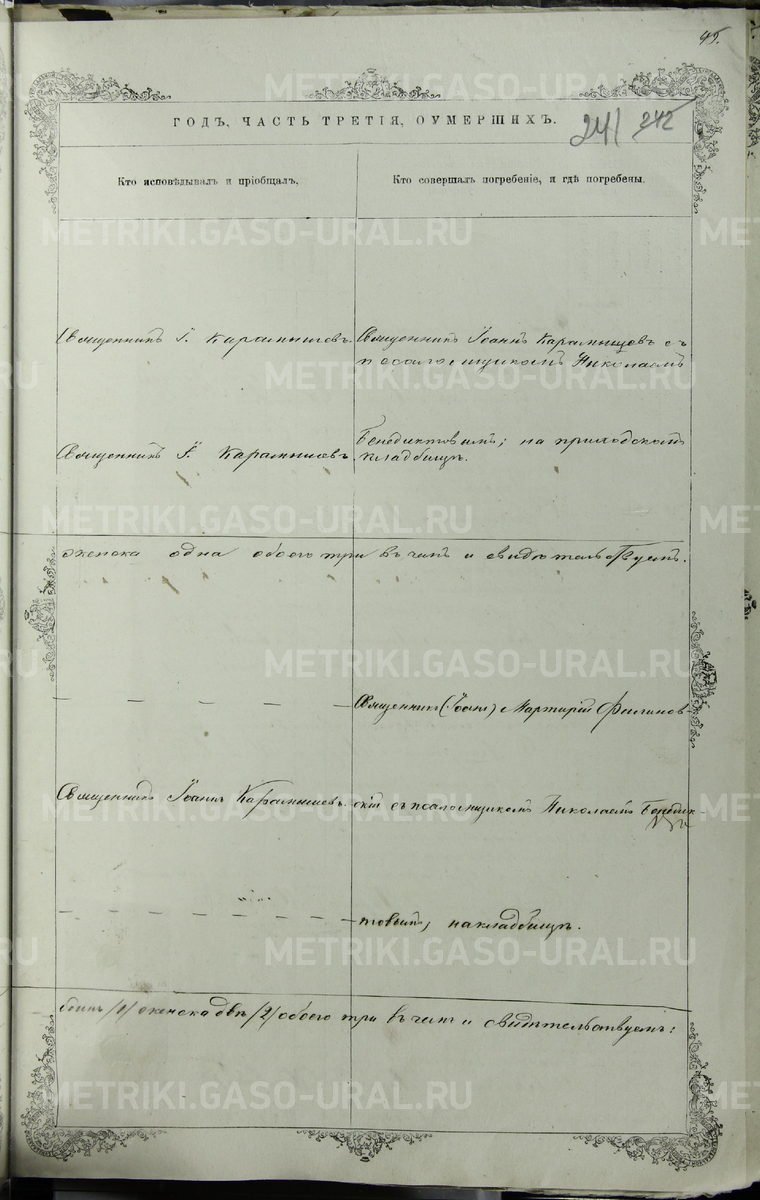 45.
ГОДЪ, ЧАСТЬ ТРЕТІЯ, О УМЕРШИХЪ.
241 242
Кто исповѣдывалъ и пріобщалъ.
Кто совершалъ погребеніе, и гдѣ погребены.
Священникъ І. Карамышевъ.
Священникъ Іоаннъ Карамышевъ съ
псаломщикомъ Николаемъ
Священникъ І. Карамышевъ
Бенедиктовымъ; на приходскомъ
кладбищѣ.
женска одна обоего три въ чемъ и свидѣтельствуемъ.
Священникъ (Іоаннъ) Мартирій Филинов-
Священникъ Іоаннъ Карамышевъ.
скій съ псаломщикомъ Николаемъ Бенедик-
товымъ; на кладбищѣ.
/1/ женска двѣ /2/ обоего три въ чемъ и свидѣтельствуемъ:
METRIKI.GASO-URAL.RU